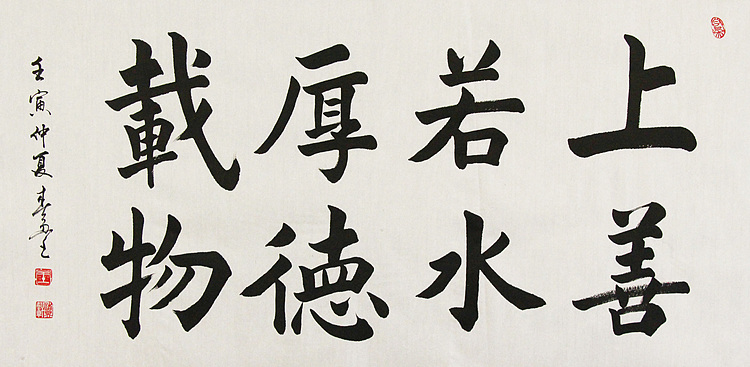 上善
若水
厚德
載物
壬寅仲夏